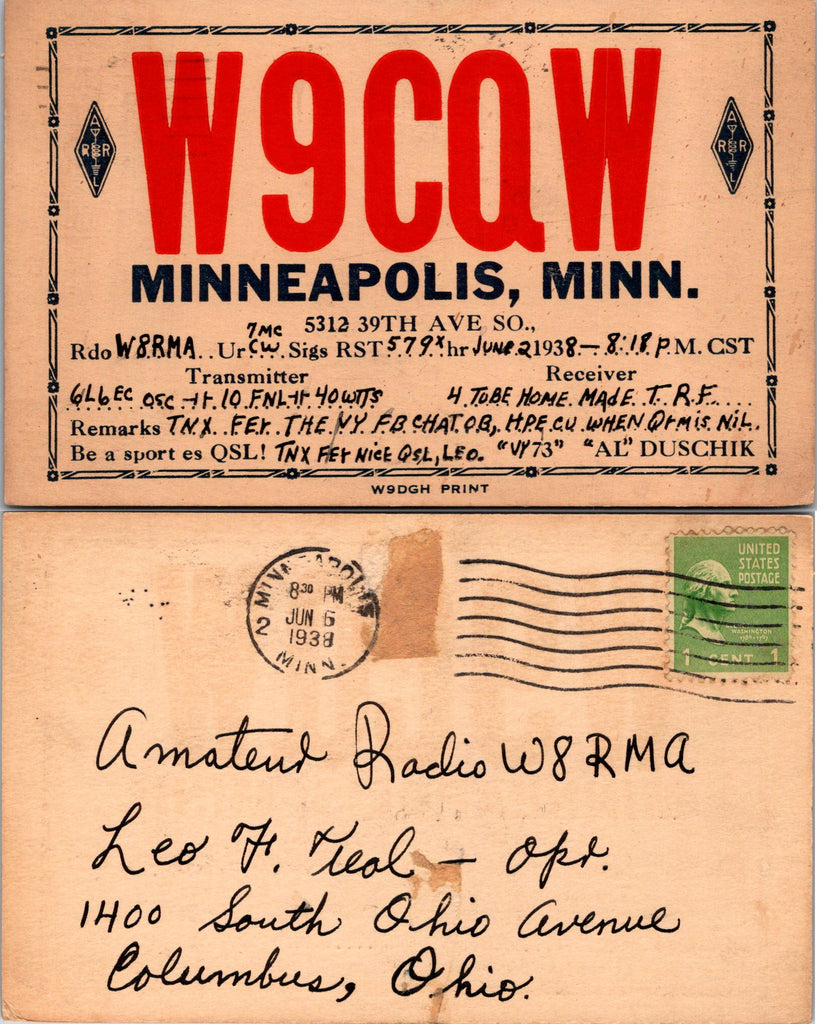 W9CQW
A R R L
A R R L
MINNEAPOLIS, MINN.
5312 39TH AVE SO.,
7MC
Rdo W8RMA.. Ur CW. Sigs RST 579x hr JUNE 2 1938 — 8:18 P.M. CST
Transmitter Receiver
6L6EC OSC -1t. 10 FNL-1t 40WTTS 4 TUBE HOME MADE T.R.F.....
Remarks TNX FER THE VY FB CHAT OB, HPE CU WHEN Qrm is NiL.
Be a sport es QSL! TNX FER NICE QSL, LEO. "VY 73" "AL" DUSCHIK
W9DGH PRINT
MINNEAPOLIS
8 30 PM
JUN 6
1938
2
MINN.
UNITED
STATES
POSTAGE
WASHINGTON
1 CENT 1
Amateur Radio W8RMA
Leo F. Teal — Opr.
1400 South Ohio Avenue
Columbus, Ohio.